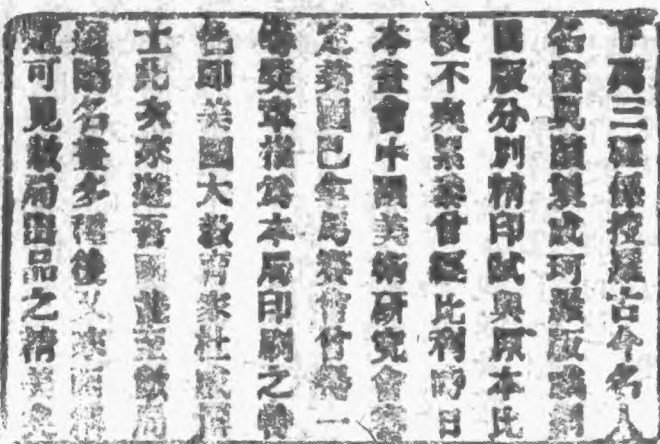 下兩三種係搜羅古今名人
名畫真蹟製成珂羅版或銅
版分別精印試與原本比
較不爽累黍曾經比利時日
本畫會中國美術研究會審
定美國巴拿馬賽會曾得一
等獎章推爲本局印刷之特
色即美國大教育家杜威博
士此次來遊吾國並至敝局
選購名畫多種後又來函稱
可見敝局出品之精美